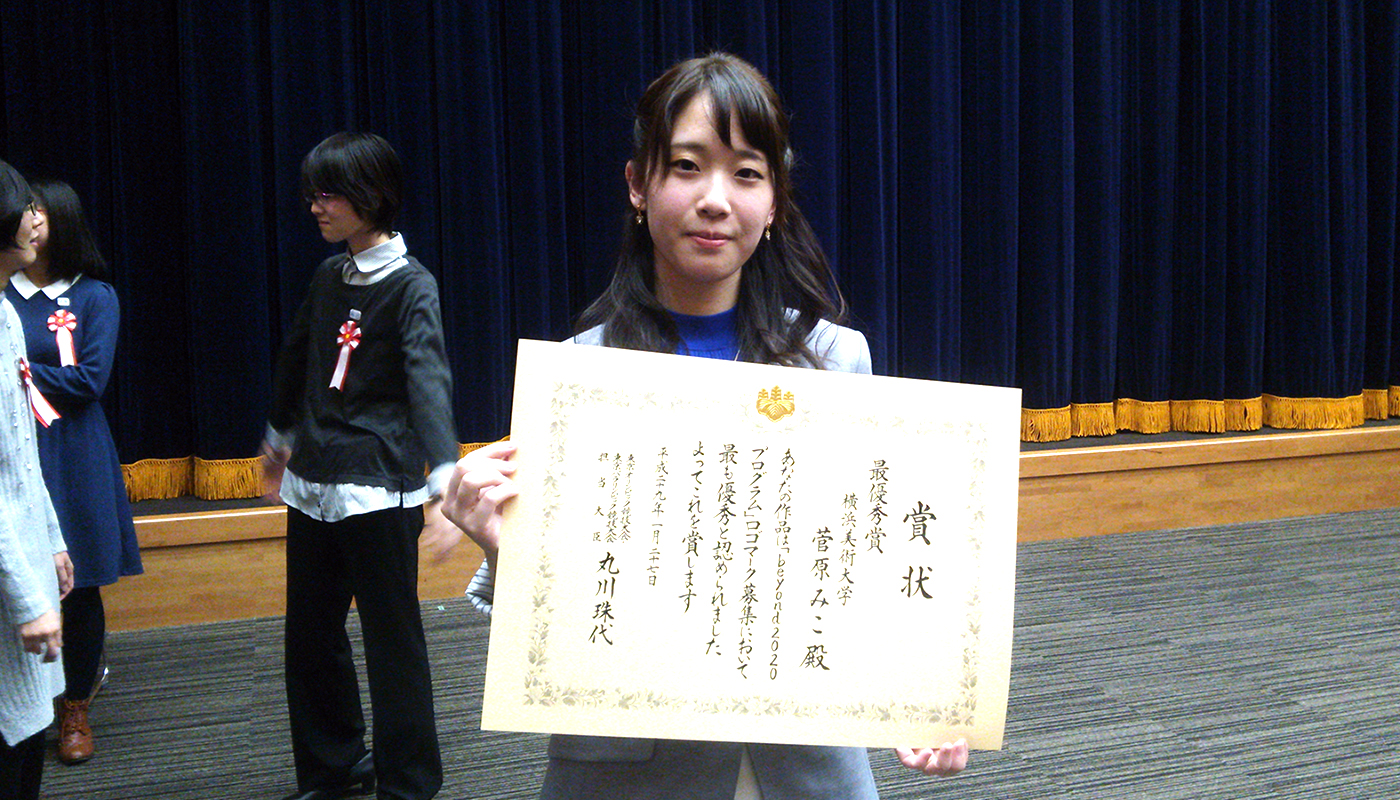 賞状
最優秀賞
横浜美術大学
菅原みこ殿
あなたの作品は「beyond2020
プログラム」ロゴマーク募集において
最も優秀と認められました
よってこれを賞します
平成二十九年一月二十七日
東京オリンピック競技大会
東京パラリンピック競技大会
担当大臣 丸川珠代